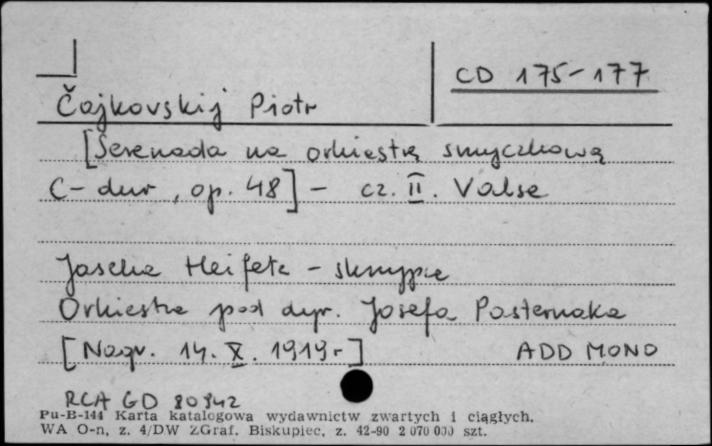 CD 175-177
Čajkovskij Piotr
[Serenada na orkiestrę smyczkową
C-dur, op. 48] - cz. II. Valse
Jascha Heifetz - skrzypce
Orkiestra pod dyr. Josefa Pasternaka
[Nagr. 14. X. 1919 r]
ADD MONO
RCA GD 80942
Pu-B-144 Karta katalogowa wydawnictw zwartych i ciągłych.
WA O-n, z. 4/DW ZGraf. Biskupiec, z. 42-90 2 070 000 szt.